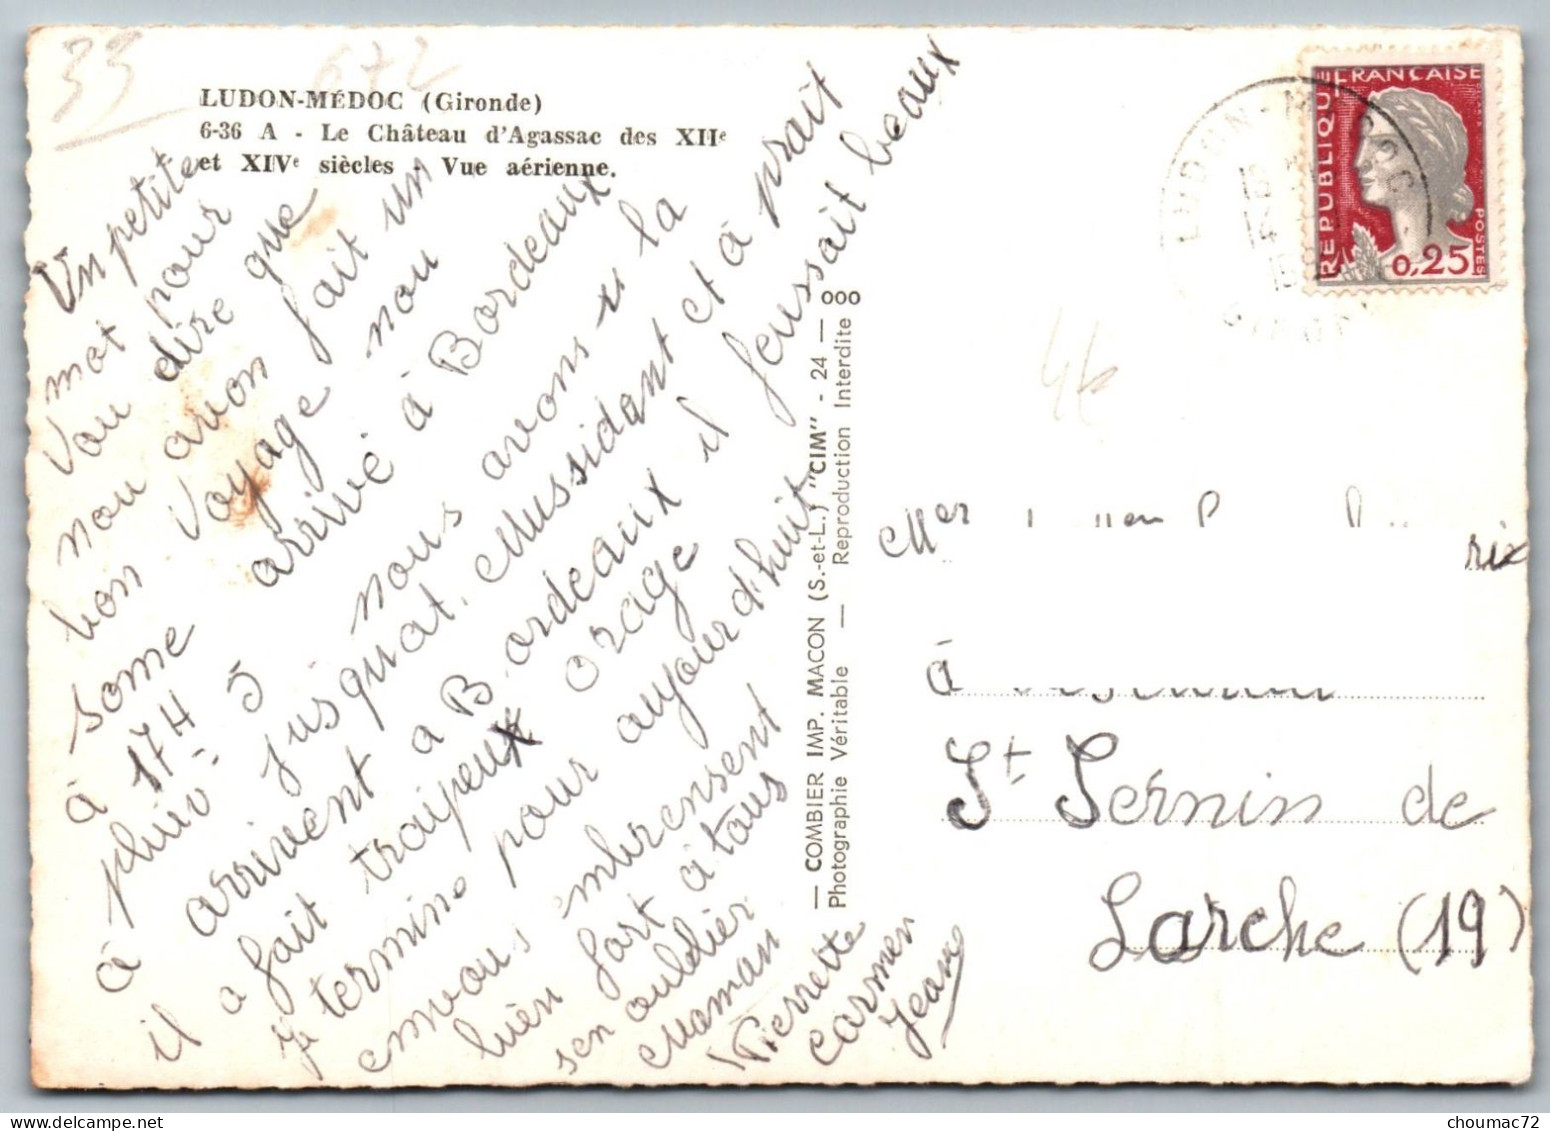 33
672
LUDON-MÉDOC (Gironde)
6-36 A - Le Château d'Agassac des XIIe
et XIVe siècles - Vue aérienne.
Un petite
mot pour
vou dire que
nou avon fait un
bon voyage nou
some arrivé à Bordeaux
à 17H 5 nous avons u la
pluiv jusquat. Mussidant et a prait
à arrivent a Bordeaux il feussait beaux
il a fait traipeux orage
je termine pour aujour d'huit
envous embrensent
bien fort à tous
sen oublier
Maman
Pierrette
Carmen
Jean
— COMBIER IMP. MACON (S.-et-L.) "CIM" - 24 — 000
Photographie Véritable — Reproduction Interdite
REPUBLIQUE FRANCAISE
POSTES
0,25
LUDON-MEDOC
GIRONDE
4€
Mer
à
St Sernin de
Larche (19)
choumac72